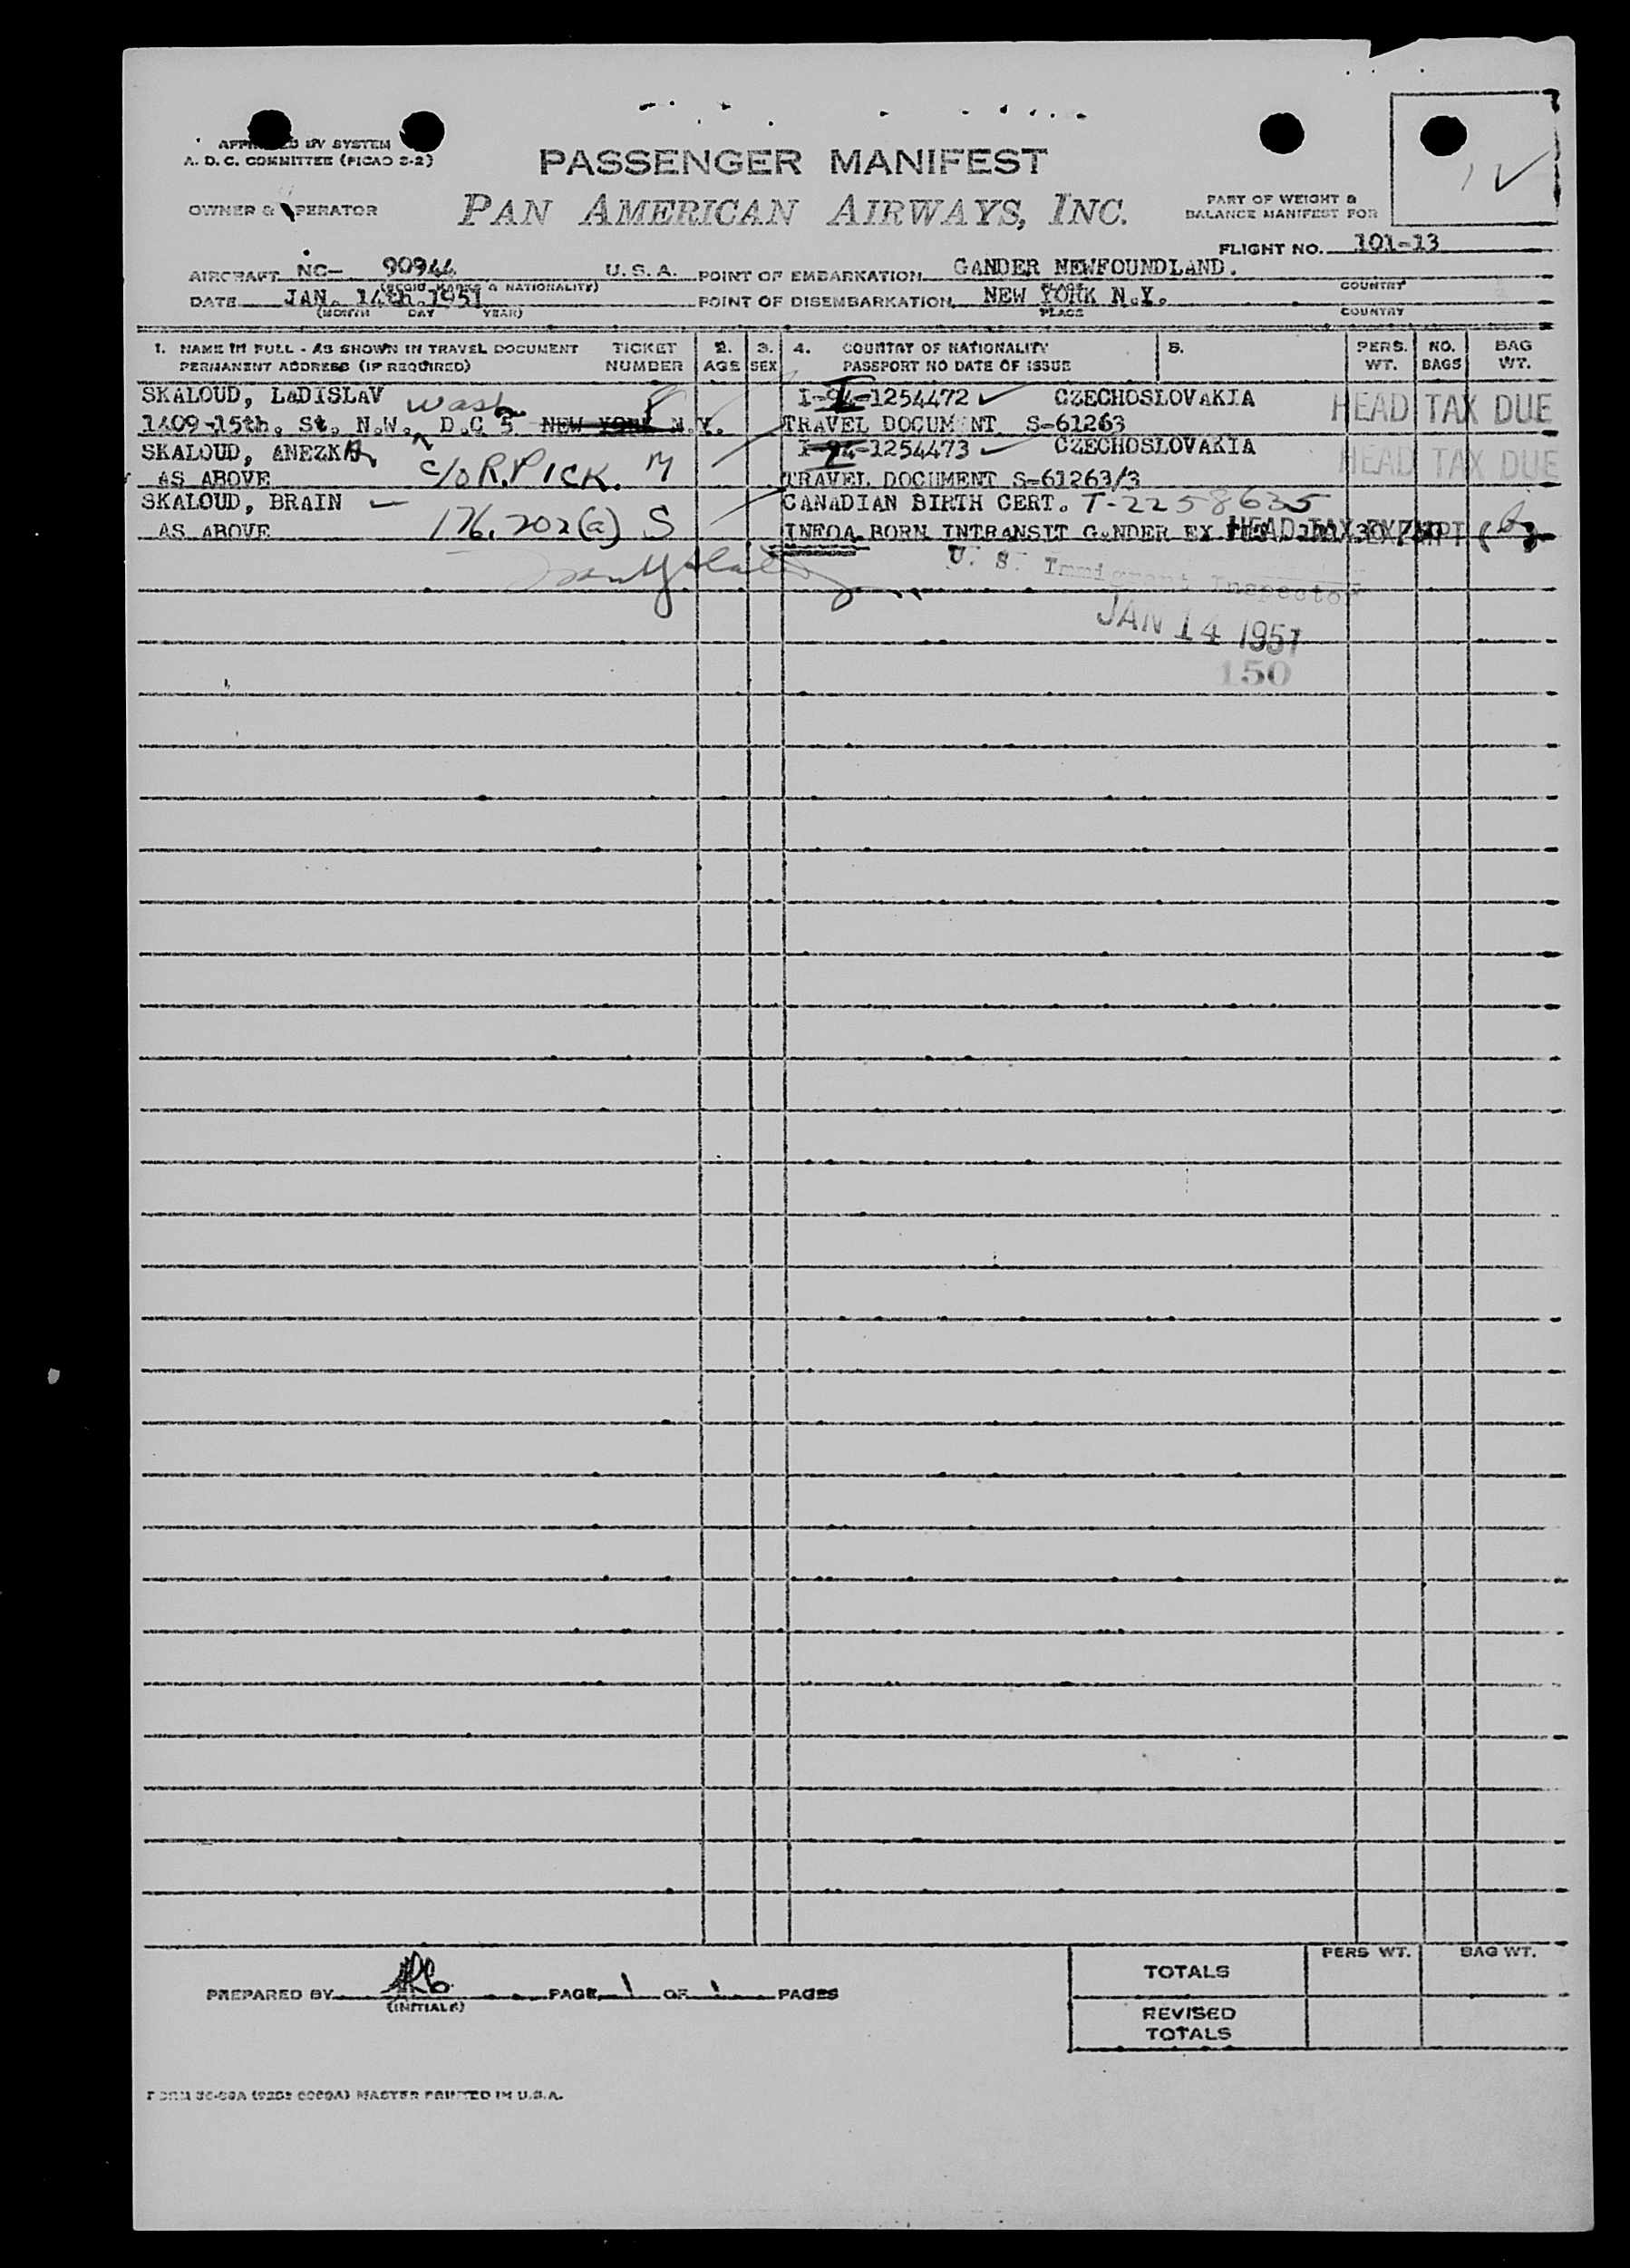 SYSTEM
A. D. C. COMMITTEE (PICAO S-2)
PASSENGER MANIFEST
OWNER &
PAN AMERICAN AIRWAYS, INC.
PART OF WEIGHT &
BALANCE MANIFEST FOR
FLIGHT NO. 101-13
AIRCRAFT NC- 90944 U. S. A. POINT OF EMBARKATION GANDER NEWFOUNDLAND.
& NATIONALITY) COUNTRY
DATE JAN. 14th. 1951 POINT OF DISEMBARKATION NEW YORK N.Y.
(MONTH DAY YEAR) PLACE COUNTRY
1. NAME IN FULL - AS SHOWN IN TRAVEL DOCUMENT TICKET 2. 3. 4. COUNTRY OF NATIONALITY 5. PERS. NO. BAG
PERMANENT ADDRESS (IF REQUIRED) NUMBER AGE SEX PASSPORT NO DATE OF ISSUE WT. BAGS WT.
SKALOUD, LADISLAV Wash I-94-1254472 ✓ CZECHOSLOVAKIA HEAD TAX DUE
1409-15th. St. N.W. D.C 5 NEW YORK N.Y. TRAVEL DOCUMENT S-61263
SKALOUD, ANEZKA I-94-1254473 CZECHOSLOVAKIA HEAD TAX DUE
AS ABOVE c/o R. PICK. M TRAVEL DOCUMENT S-61263/3
SKALOUD, BRAIN CANADIAN BIRTH CERT. T-2258635
AS ABOVE 176.202(a) S INFOA BORN INTRANSIT GANDER EX HEAD TAX EXEMPT
U. S. Immigrant Inspector
JAN 14 1951
150
PREPARED BY (INITIALS) PAGE 1 OF 1 PAGES
TOTALS PERS WT. BAG WT.
REVISED
TOTALS
MASTER PRINTED IN U.S.A.